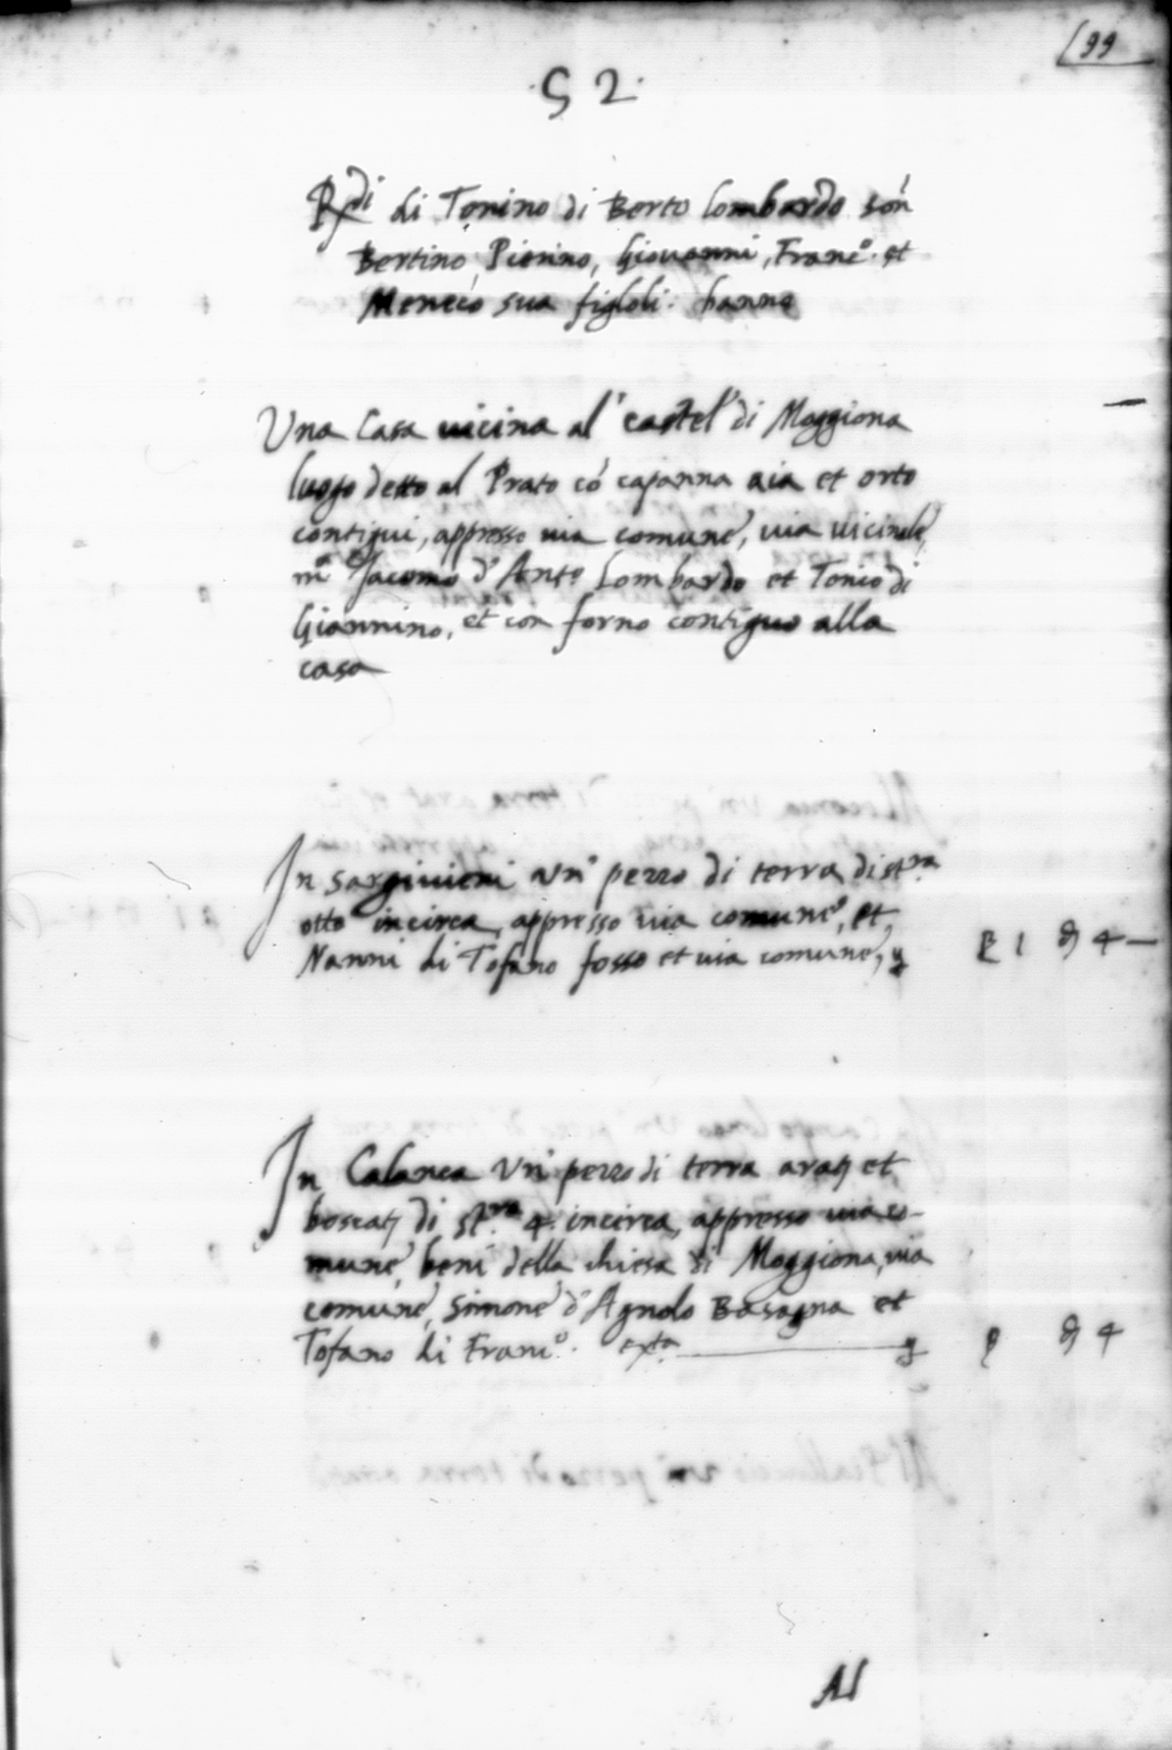 99
.52.
Rdi di Tonino di Berto lombardo son
Bertino, Pierino, Giovanni, Franco. et
Meneco sua figloli: hanno
Una Casa uicina al castel di Moggiona
luogo detto al Prato có capanna aia et orto
contigui, appresso uia comune, uia uicinale,
mo Jacomo d'Anto Lombardo et Tonio di
Giannino, et con forno contiguo alla
casa
In un pezzo di terra di stra
otto incirca, appresso uia comune, et
Nanni di Tofano fosso et uia comune,
1 4 —
In Calanca un pezzo di terra arat et
boscat di stra 4. incirca, appresso uia co-
mune, beni della chiesa di Moggiona, uia
comune, Simone d'Agnolo Basagna et
Tofano di Franco.
4
Al